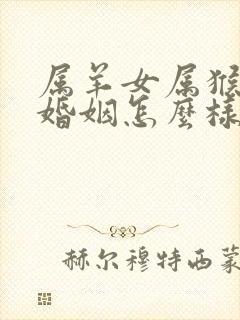 属羊女属猴
婚姻怎麽样
赫尔穆特西蒙